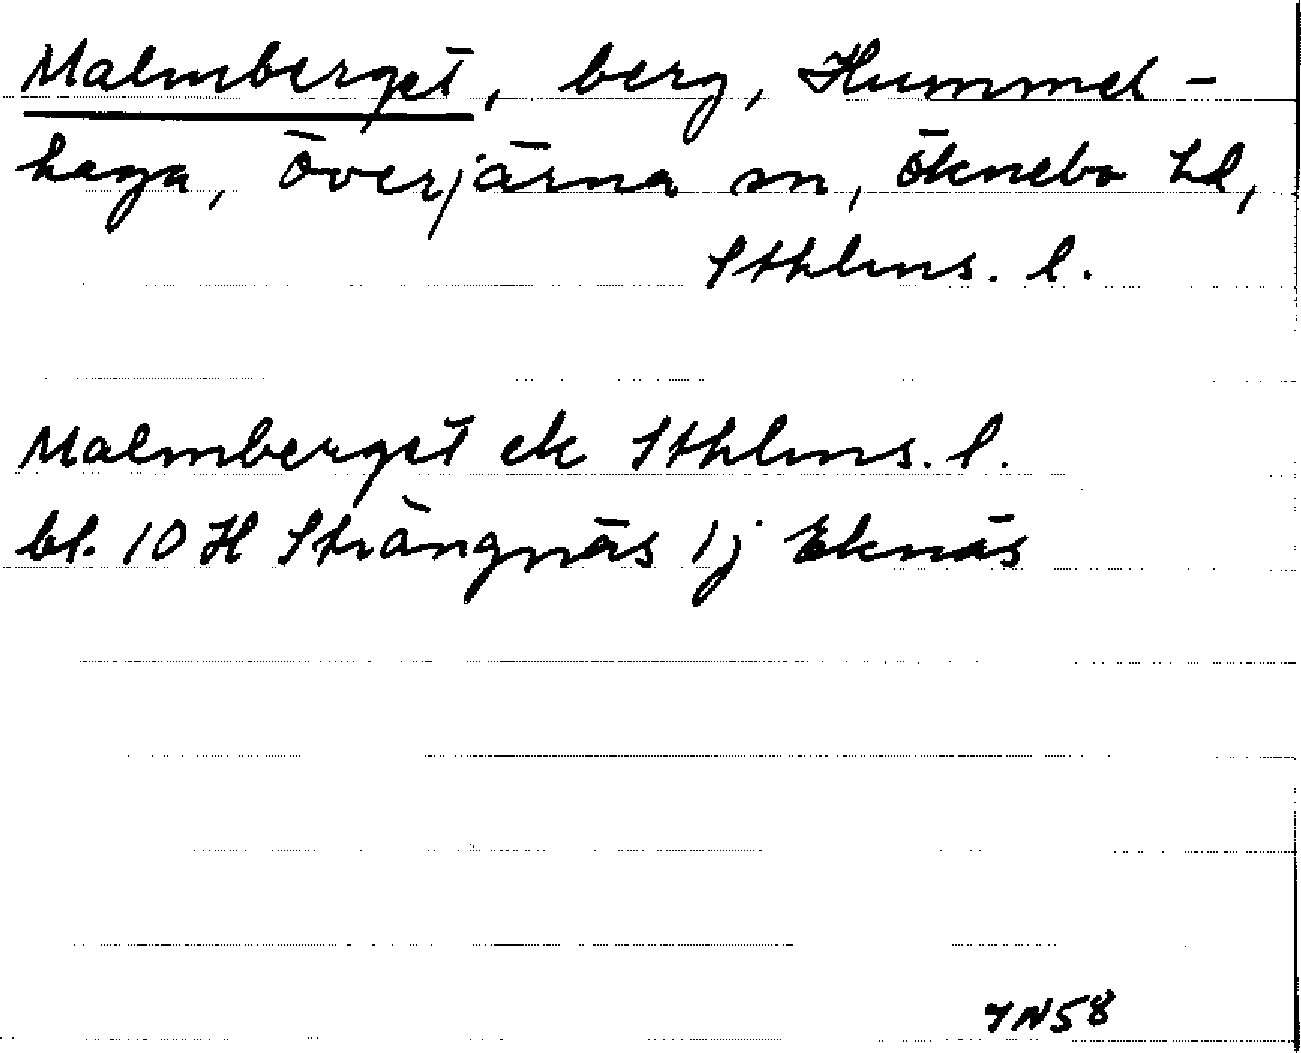 Malmberget, berg, Hummel-
haga, Överjärna sn, Öknebo hd,
Sthlms. l.
Malmberget ek Sthlms. l.
bl. 10 H Strängnäs 1j Eknäs
7N58